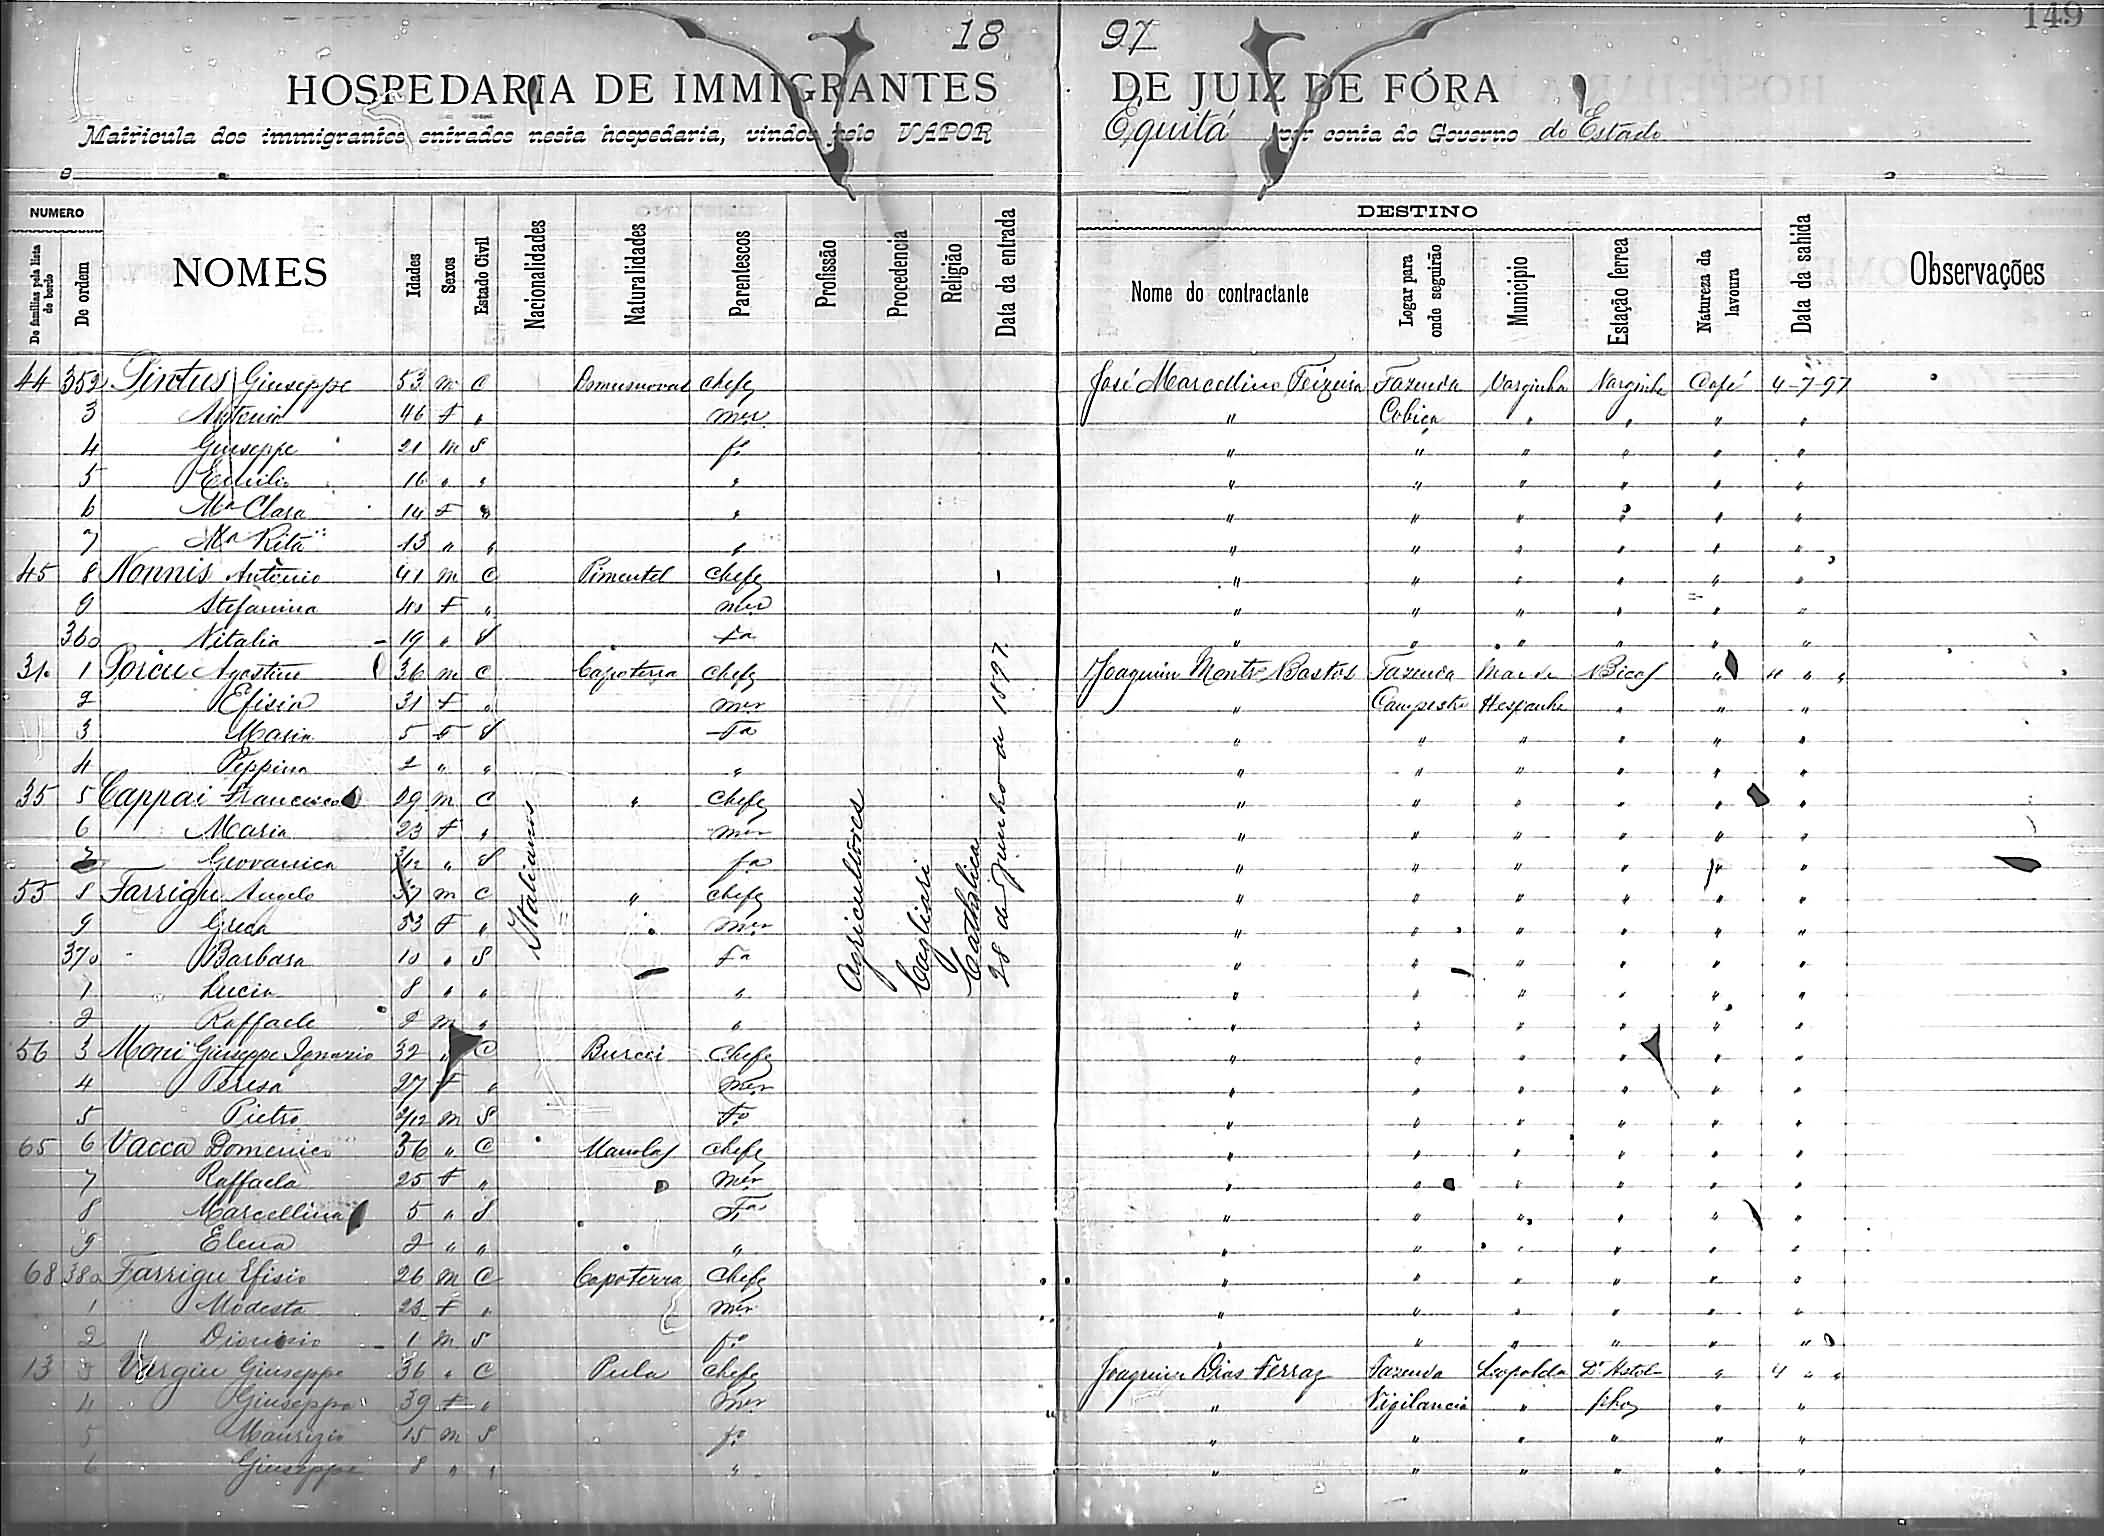 149
18 97
HOSPEDARIA DE IMMIGRANTES DE JUIZ DE FÓRA
Matricula dos immigrantes entrados nesta hospedaria, vindos pelo VAPOR Equitá por conta do Governo do Estado
e
NUMERO DESTINO
De familias pela lista de bordo De ordem NOMES Idades Sexos Estado Civil Nacionalidades Naturalidades Parentescos Profissão Procedencia Religião Data da entrada Nome do contractante Logar para onde seguirão Municipio Estação ferrea Natureza da lavoura Data da sahida Observações
44 352 Pintus Giuseppe 53 m C chefe José Marcellino Teixeira Fazenda Varginha Varginha Café 4-7-97
3 46 f " mer " Cobiça " " " "
4 Giuseppe 21 m S fo " " " " " "
5 Emilio 16 " " " " " " " " "
6 Ma Clara 14 f " " " " " " " "
7 Ma Rita 13 " " " " " " " " "
45 8 Nonnis Antonio 41 m C Pimentel chefe " " " " " "
9 Stefanina f " mer " " " " " "
360 Vitalia 19 " S fa " " " " " "
1 Porcu Agostino 36 m C Capoterra chefe Joaquim Bastos Fazenda Mar de Bicas " 4 " "
2 Efisia 31 f " mer " Campestre Hespanha " " "
3 Maria 5 f S fa " " " " " "
4 Peppina 2 " " " " " " " " "
35 5 Cappai Francesco 29 m C " chefe " " " " " "
6 Maria 23 f " mer " " " " " "
7 Giovanica " S fa " " " " " "
55 8 Farrigu Angelo m C " chefe " " " " " "
9 Greca 53 f " " mer " " " " " "
370 Barbara 10 " S fa " " " " " "
1 Lucia 8 " " " " " " " " "
2 Raffaele 2 m " " " " " " " "
56 3 Moni Giuseppe Ignazio 32 " C Burcei chefe " " " " " "
4 Teresa 27 f " mer " " " " " "
5 Pietro m S fo " " " " " "
65 6 Vacca Domenico 36 " C chefe " " " " " "
7 Raffaela 25 f " mer " " " " " "
8 Marcellina 5 " S fa " " " " " "
9 Elena 2 " " " " " " " " "
68 380 Farrigu Efisio 26 m C Capoterra chefe " " " " " "
1 Modesta 23 f " mer " " " " " "
2 Dionisio 1 m S fo " " " " " "
13 3 Vargiu Giuseppe 36 " C Pula chefe Joaquim Dias Ferraz Fazenda Leopoldina Dr Astol- " 4 " "
4 Giuseppa 39 f " mer " Vigilancia " pho " "
5 Maurizio 15 m S fo " " " " " "
6 Giuseppe 8 " " " " " " " " "
Italianos
Agricultores
Cagliari
Catholica
28 de Junho de 1897